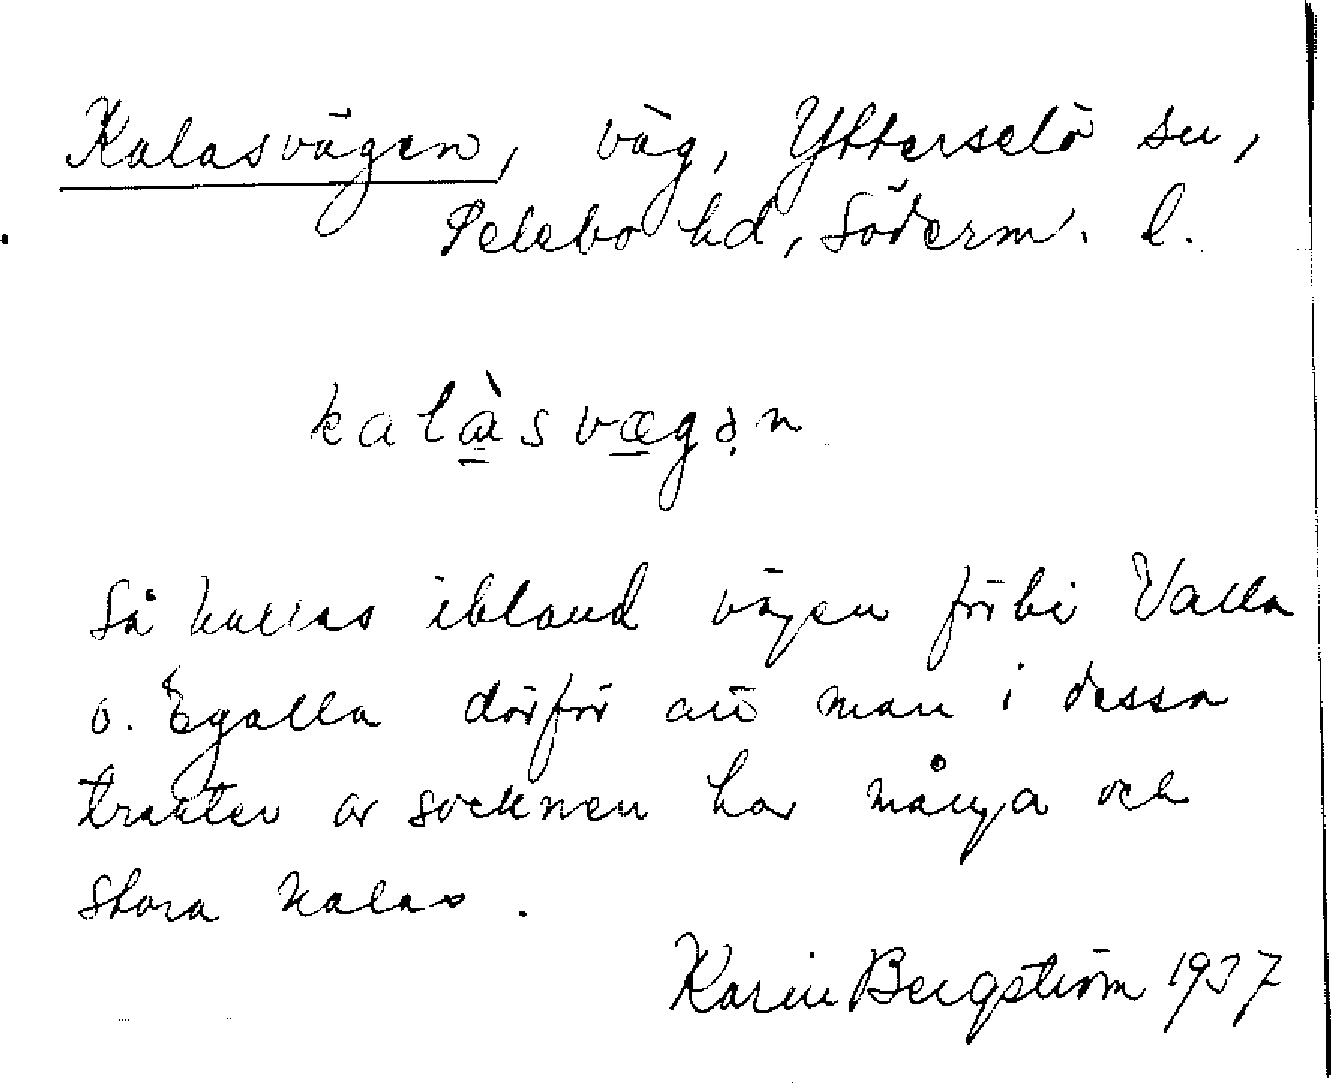 Kalasvägen, väg, Ytterselö sn,
Selebo hd, Söderm. l.
kalàsvægən
Så kallas ibland vägen förbi Valla
o. Egalla därför att man i dessa
trakter av socknen har många och
stora kalas.
Karin Bergström 1937